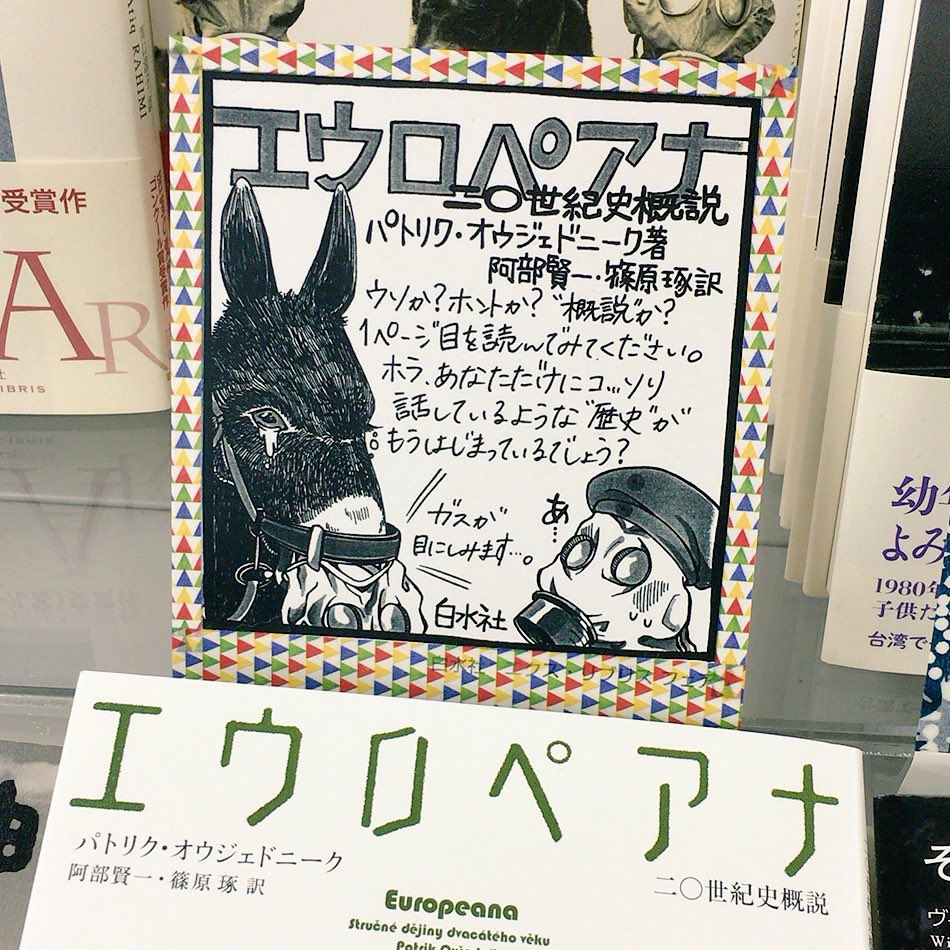 Atiq RAHIMI
受賞作
AR
IBRIS
エウロペアナ
二〇世紀史概説
パトリク・オウジェドニーク著
阿部賢一・篠原琢訳
ウソか?ホントか?"概説"か?
1ページ目を読んでみてください。
ホラ、あなただけにコッソリ
話しているような"歴史"が
もうはじまっているでしょう?
ガスが
目にしみます…。
あ…
白水社
白水社 エクス・リブリス フェア
幼
よみ
1980年
子供だ
台湾で
エウロペアナ
パトリク・オウジェドニーク
阿部賢一・篠原琢 訳
二〇世紀史概説
Europeana
Stručné dějiny dvacátého věku
Patrik
そ
ヴ